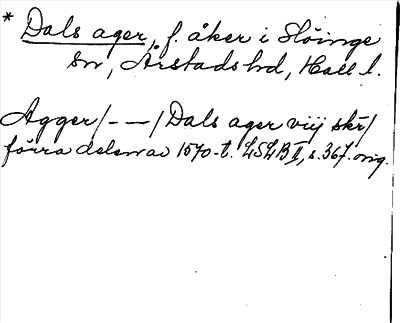 * Dals ager, f. åker i Slöinge
sn, Årstads hd, Hall l.
Agger/- — -/Dals ager viij skr/
förra delen av 1570-t. LSLB II, s. 367. orig.